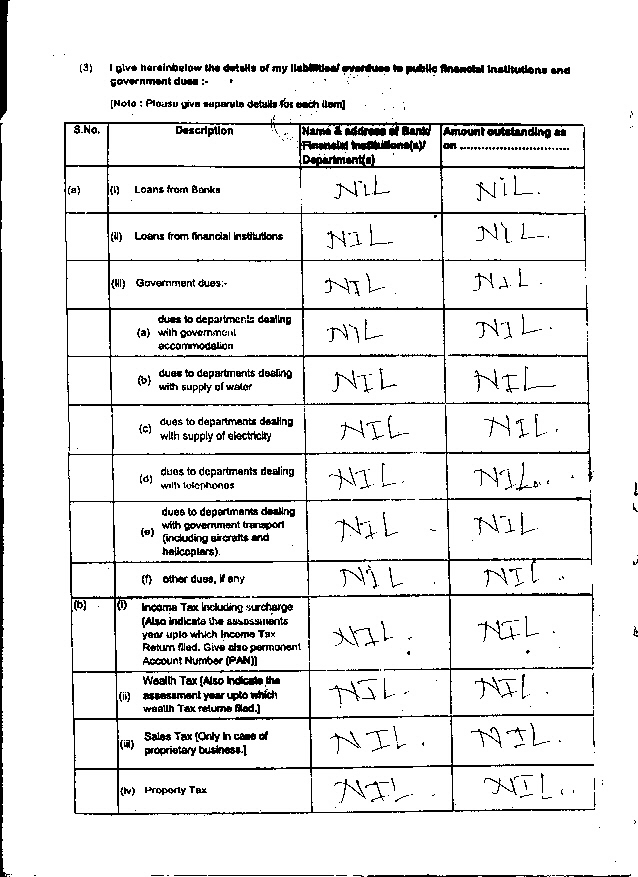 (3) I give hereinbelow the details of my liabilities/ overdues to public financial institutions and
government dues :-
[Note : Please give separate details for each item]
S.No. Description Name & address of Bank/ Amount outstanding as
Financial Institutions(s)/ on ..............................
Department(s)
(a) (i) Loans from Banks NIL NIL.
(ii) Loans from financial institutions NIL NIL.
(iii) Government dues:- NIL. NIL.
dues to departments dealing
(a) with government NIL NIL.
accommodation
(b) dues to departments dealing NIL NIL
with supply of water
(c) dues to departments dealing NIL NIL.
with supply of electricity
(d) dues to departments dealing NIL. NIL..
with telephones
dues to departments dealing
(e) with government transport NIL NIL
(including aircrafts and
helicopters).
(f) other dues, if any NIL NIL.
(b) (i) Income Tax including surcharge
[Also indicate the assessments
year upto which Income Tax NIL. NIL.
Return filed. Give also permanent
Account Number (PAN)]
Wealth Tax [Also indicate the
(ii) assessment year upto which NIL. NIL.
wealth Tax returns filed.]
(iii) Sales Tax [Only in case of NIL. NIL.
proprietary business.]
(iv) Property Tax NIL. NIL..